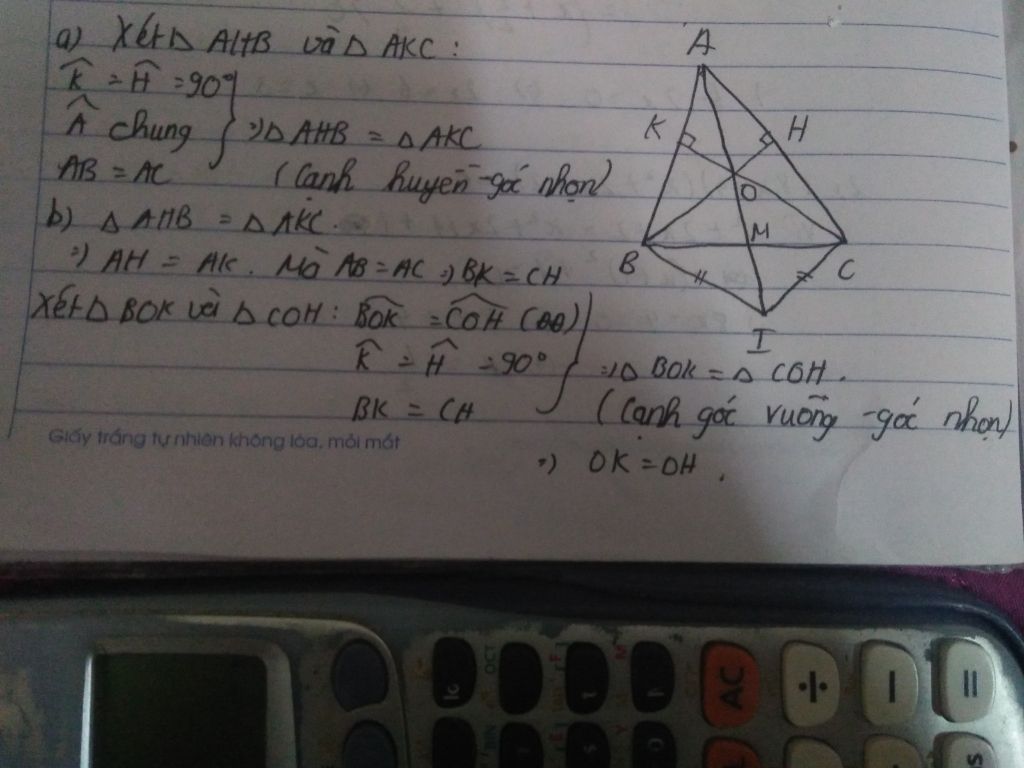 a) Xét △ AHB và △ AKC :
K̂ = Ĥ = 90°
Â chung
⇒ △ AHB = △ AKC
AB = AC (Cạnh huyền - góc nhọn)
b) △ AHB = △ AKC.
⇒ AH = AK. Mà AB = AC ⇒ BK = CH
Xét △ BOK và △ COH : BOK = COH (đđ)
K̂ = Ĥ = 90°
⇒ △ BOK = △ COH.
BK = CH (Cạnh góc vuông - góc nhọn)
⇒ OK = OH.
A
K
H
O
M
B
C
I
Giấy trắng tự nhiên không lóa, mỏi mắt
AC
÷
−
=